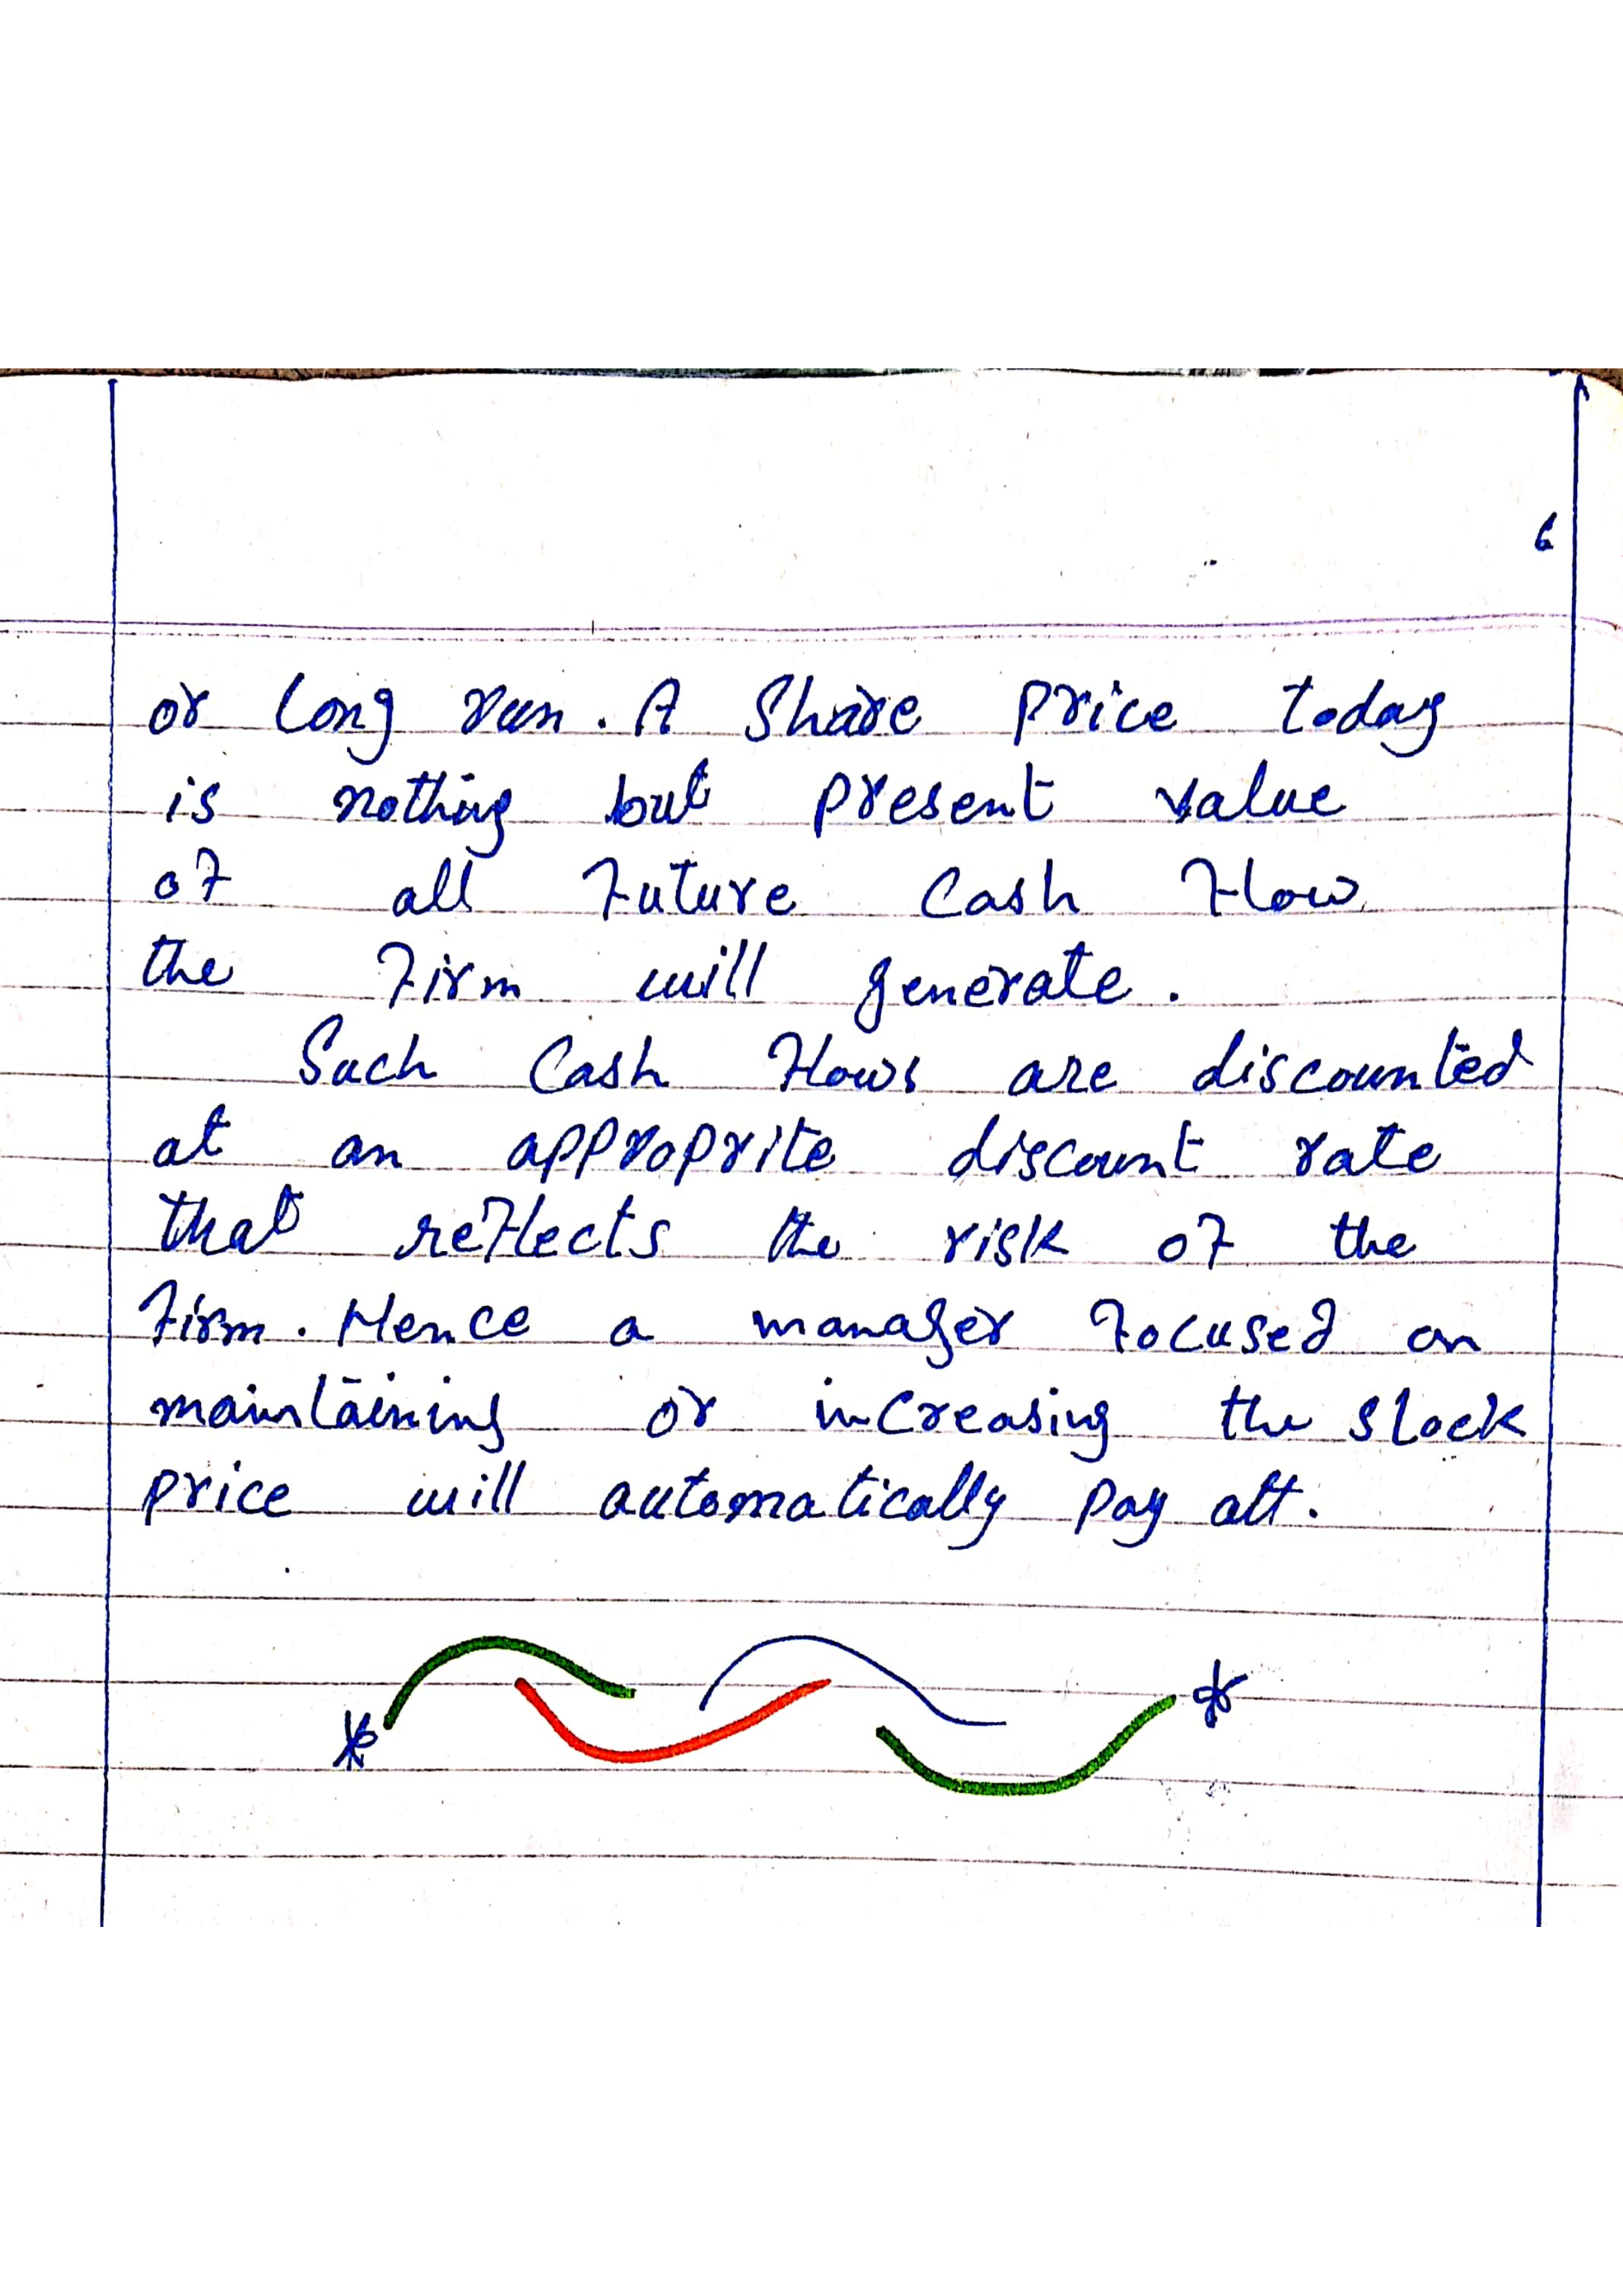 6
or long run. A Share price today
is nothing but present value
of all Future Cash Flow
the Firm will generate.
Such Cash Flows are discounted
at an approprite discount rate
that reflects the risk of the
Firm. Hence a manager Focused on
maintaining or increasing the stock
price will automatically pay att.